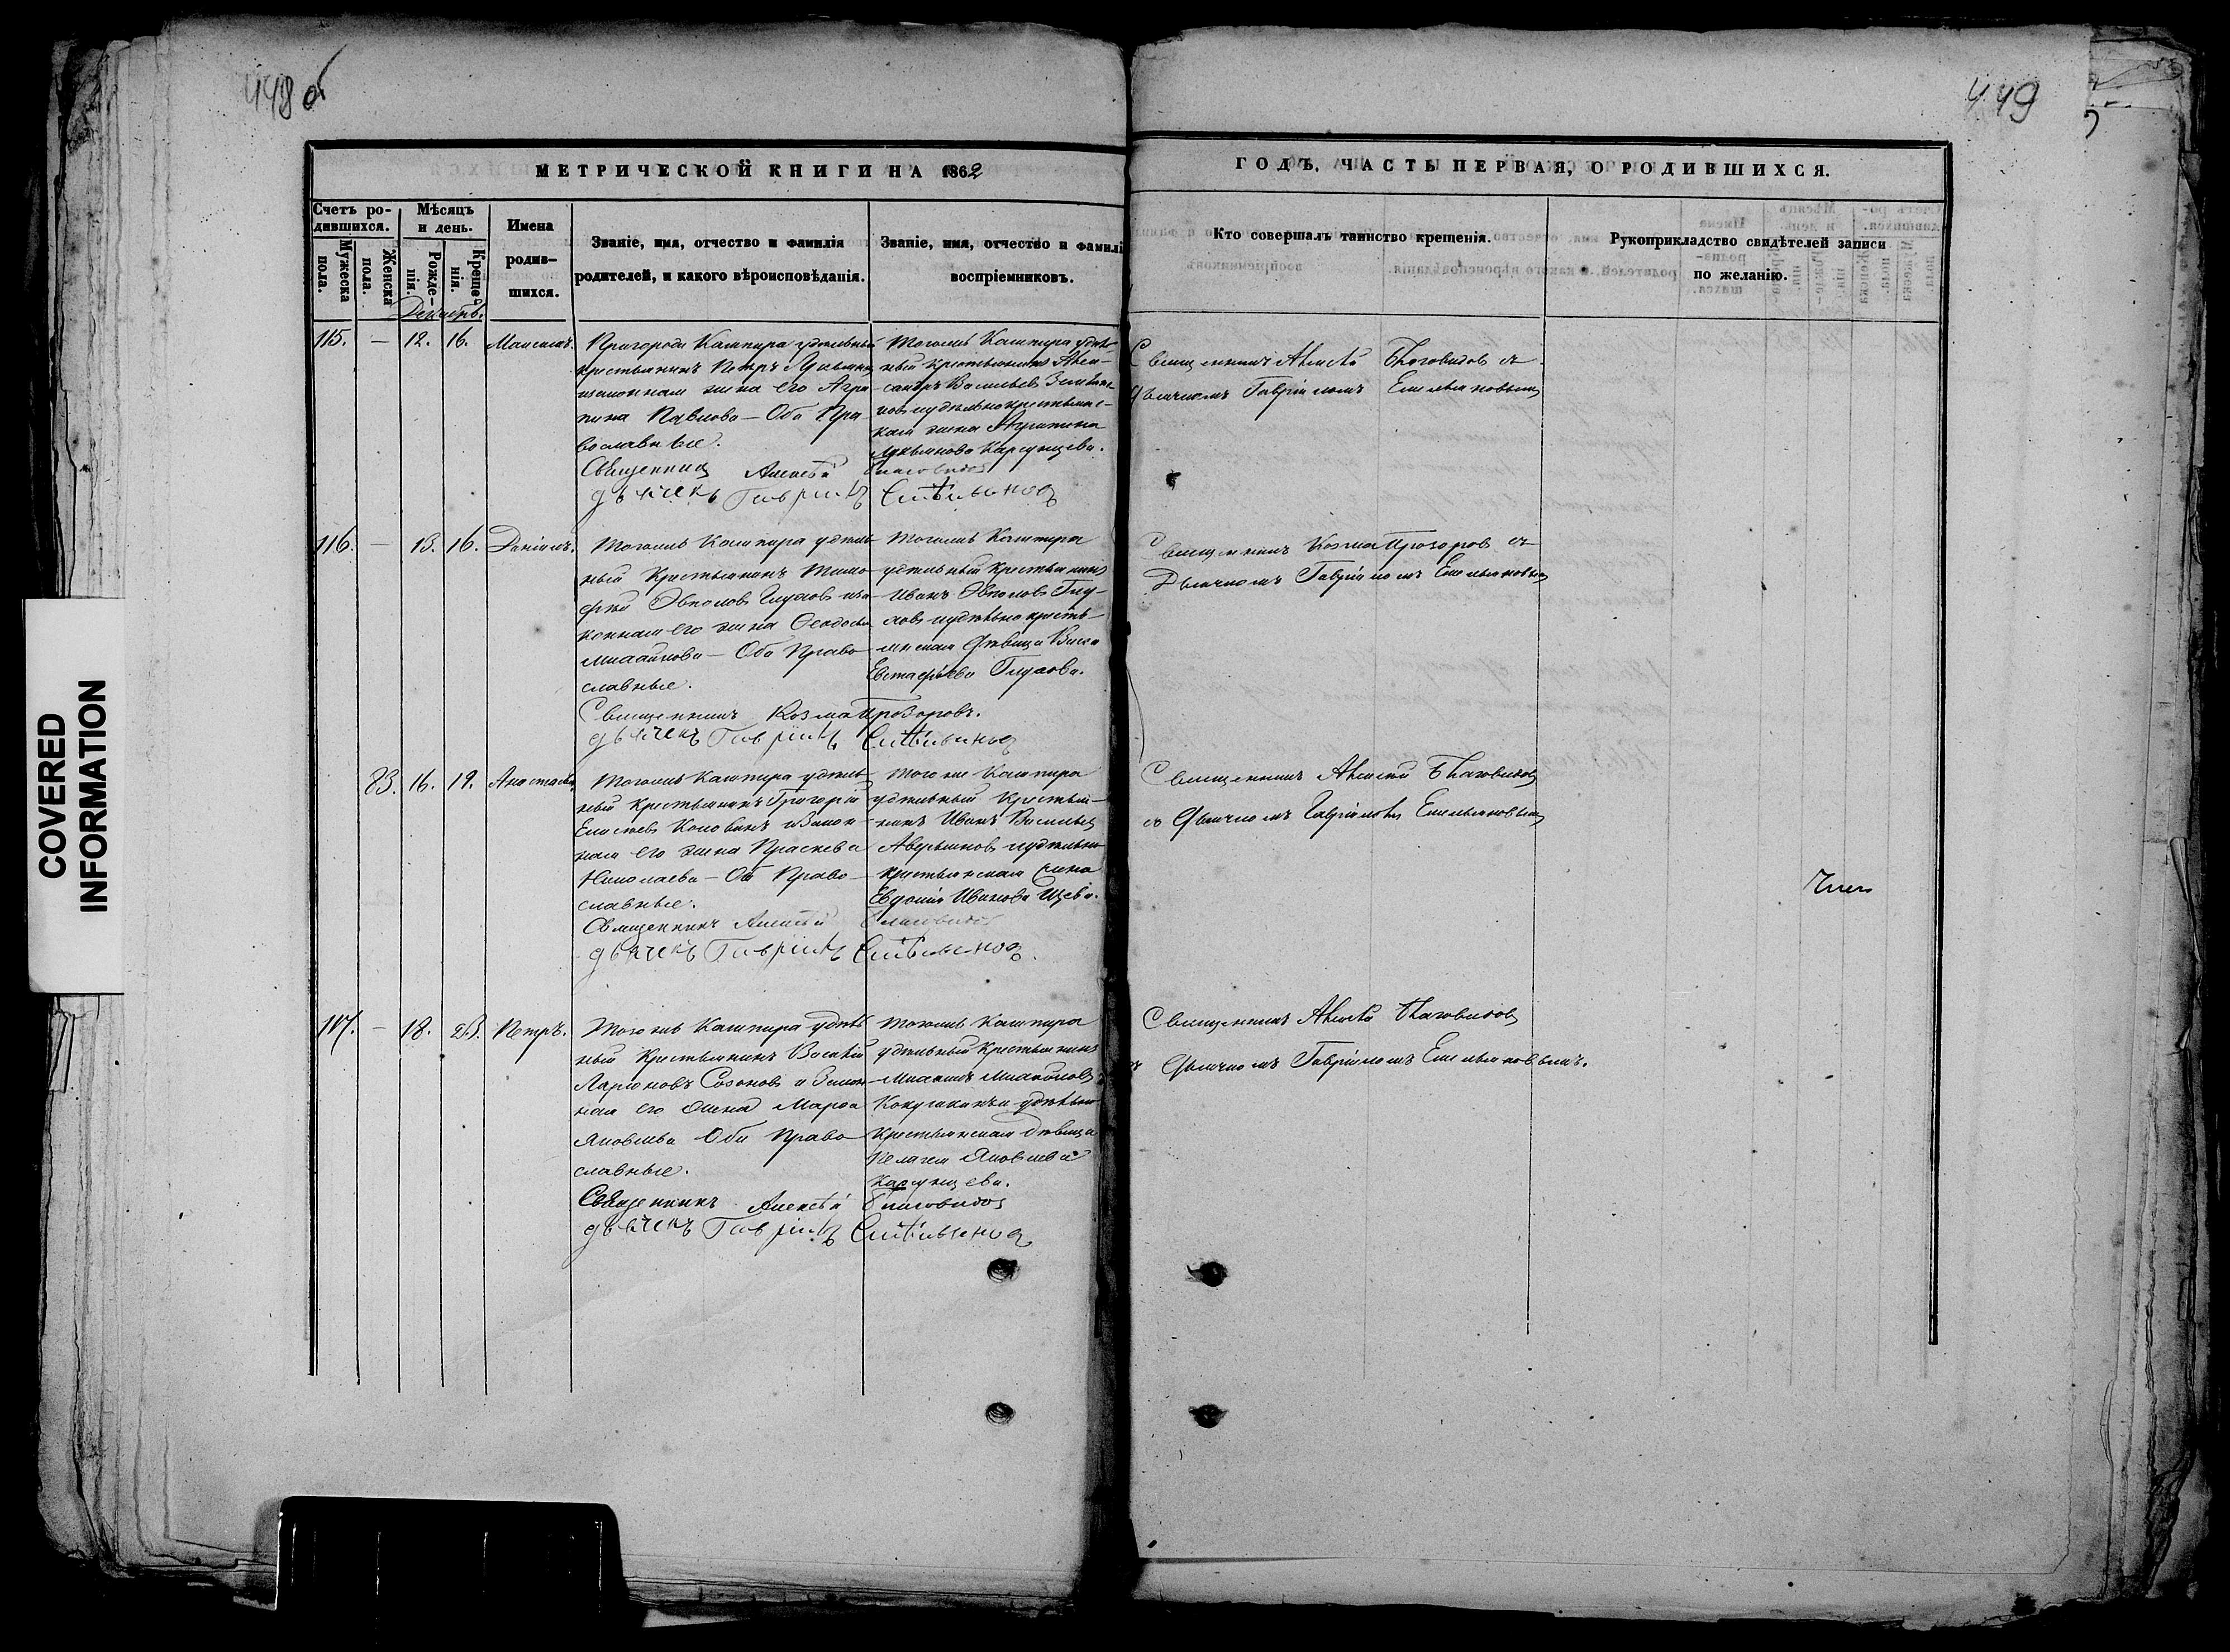 448 об
449
МЕТРИЧЕСКОЙ КНИГИ НА 1862
ГОДЪ, ЧАСТЬ ПЕРВАЯ, О РОДИВШИХСЯ.
Счетъ ро-
дившихся.
Мужеска
пола.
Женска
пола.
Мѣсяцъ
и день.
Рожде-
нія.
Креще-
нія.
Имена
родив-
шихся.
Званіе, имя, отчество и фамилія
родителей, и какого вѣроисповѣданія.
Званіе, имя, отчество и фамилі
воспріемниковъ.
Кто совершалъ таинство крещенія.
Рукоприкладство свидѣтелей записи
по желанію.
Декабрь.
115. — 12. 16.
Пригорода Кашпира удѣльный
крестьянинъ Петръ
законная жена его Агри
пина Павлова — Оба Пра
вославные.
Священникъ Алексѣй Благовидов
дьячекъ Гавріилъ
Тогожъ Кашпира удѣль
ный крестьянинъ Алек-
сандръ Васильевъ
кая жена Агрипина
Лукьянова Карпунцева.
Священникъ Алексѣй Благовидовъ съ
Дьячкомъ Гавріиломъ Емельяновымъ
116. — 13. 16. Даніилъ.
Тогожъ Кашпира удѣль
ный Крестьянинъ Тимо
фей Глуховъ иза
конная его жена Ѳеодосья
Михайлова — Оба Право
славные.
Священникъ Козма Прозоровъ.
дьячекъ Гавріилъ
Тогожъ Кашпира
удѣльный Крестьянинъ
Иванъ Глу-
ховъ иудѣльнокресть-
янская дѣвица
Евстафьева Глухова.
Священникъ Козма Прозоровъ съ
Дьячкомъ Гавріиломъ Емельяновымъ
83. 16. 19. Анастасія
Тогожъ Кашпира удѣль
ный Крестьянинъ Григорій
Елисѣевъ изакон
ная его жена Праскева
Николаева — Оба Право
славные.
Священникъ Алексѣй Благовидов
дьячекъ Гавріилъ
Тогоже Кашпира
удѣльный Крестья-
нинъ Иванъ Васильевъ
Аверьяновъ иудѣльно
крестьянская жена
Евдокія Иванова
Священникъ Алексѣй Благовидовъ
съ Дьячкомъ Гавріиломъ Емельяновымъ
117. — 18. 23. Петръ.
Тогожъ Кашпира удѣль
ный Крестьянинъ Василій
Ларіоновъ Созоновъ и Закон
ная его жена Марѳа
Яковлева Оба Право
славные.
Священникъ Алексѣй Благовидов
дьячекъ Гавріилъ
Тогожъ Кашпира
удѣльный Крестьянинъ
Михаилъ Михайловъ
Кокушкинъ и удѣльно
Крестьянская дѣвица
Пелагея Яковлева
Карпунцева.
Священникъ Алексѣй Благовидовъ
съ Дьячкомъ Гавріиломъ Емельяновымъ.
COVERED
INFORMATION